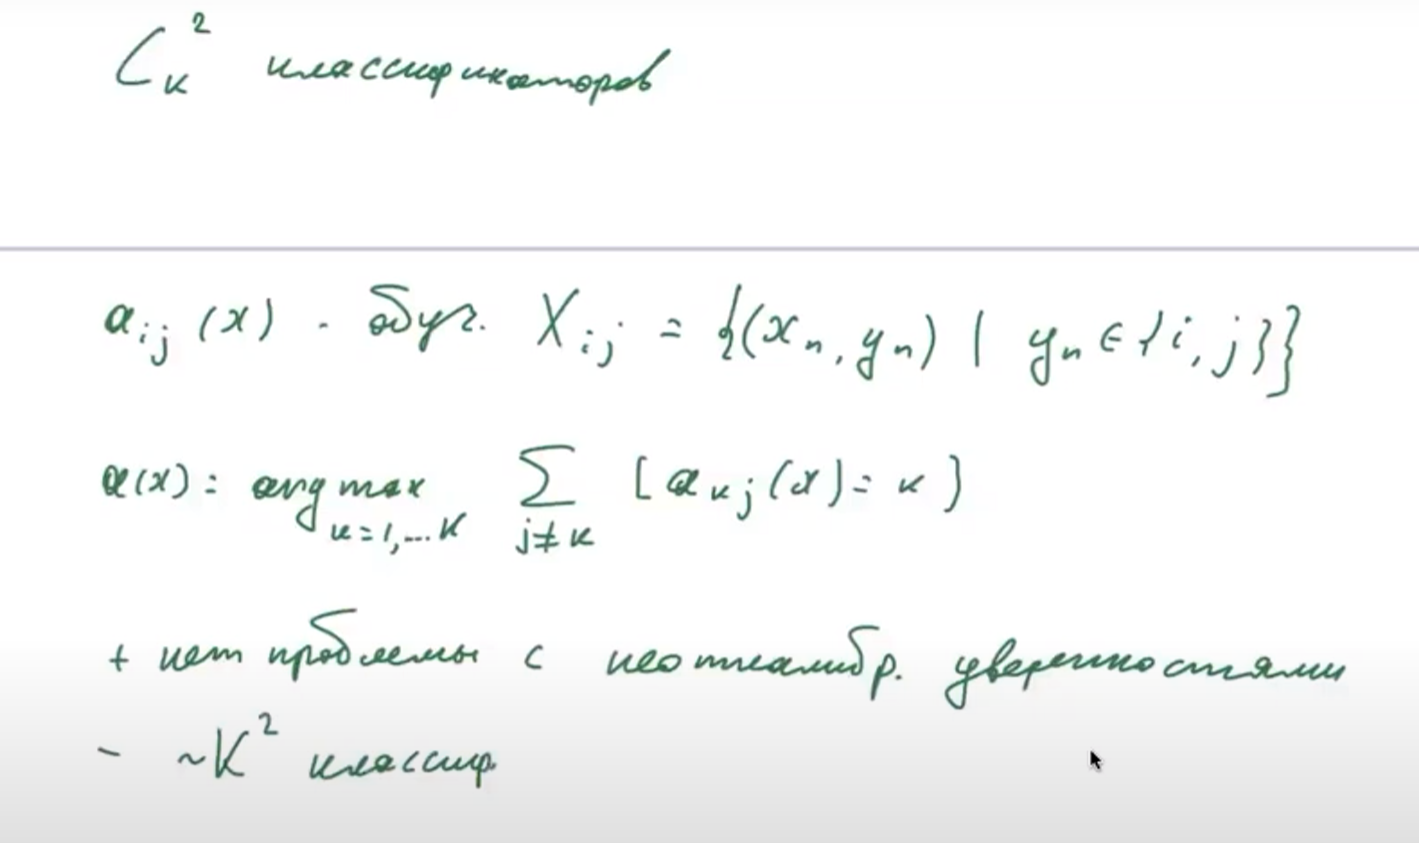 C_K^2 классификаторов
a_{ij}(x) - обуч. X_{ij} = {(x_n, y_n) | y_n ∈ {i, j}}
a(x) = arg max_{k=1,...K} ∑_{j≠k} [a_{kj}(x) = k]
+ нет проблемы с неоткалибр. уверенностями
- ~K^2 классиф.